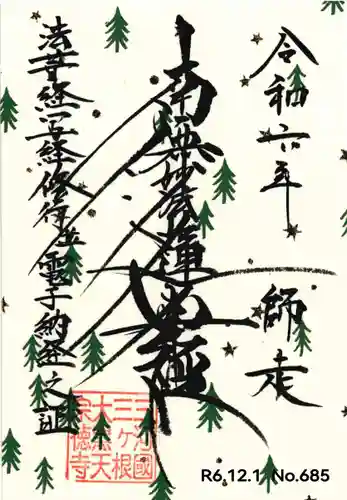 令和六年
師走
南無妙法蓮華経
法華経写経修行並電子納経之証
三河國
三ヶ根
大黒天
宗徳寺
R6,12.1 No.685